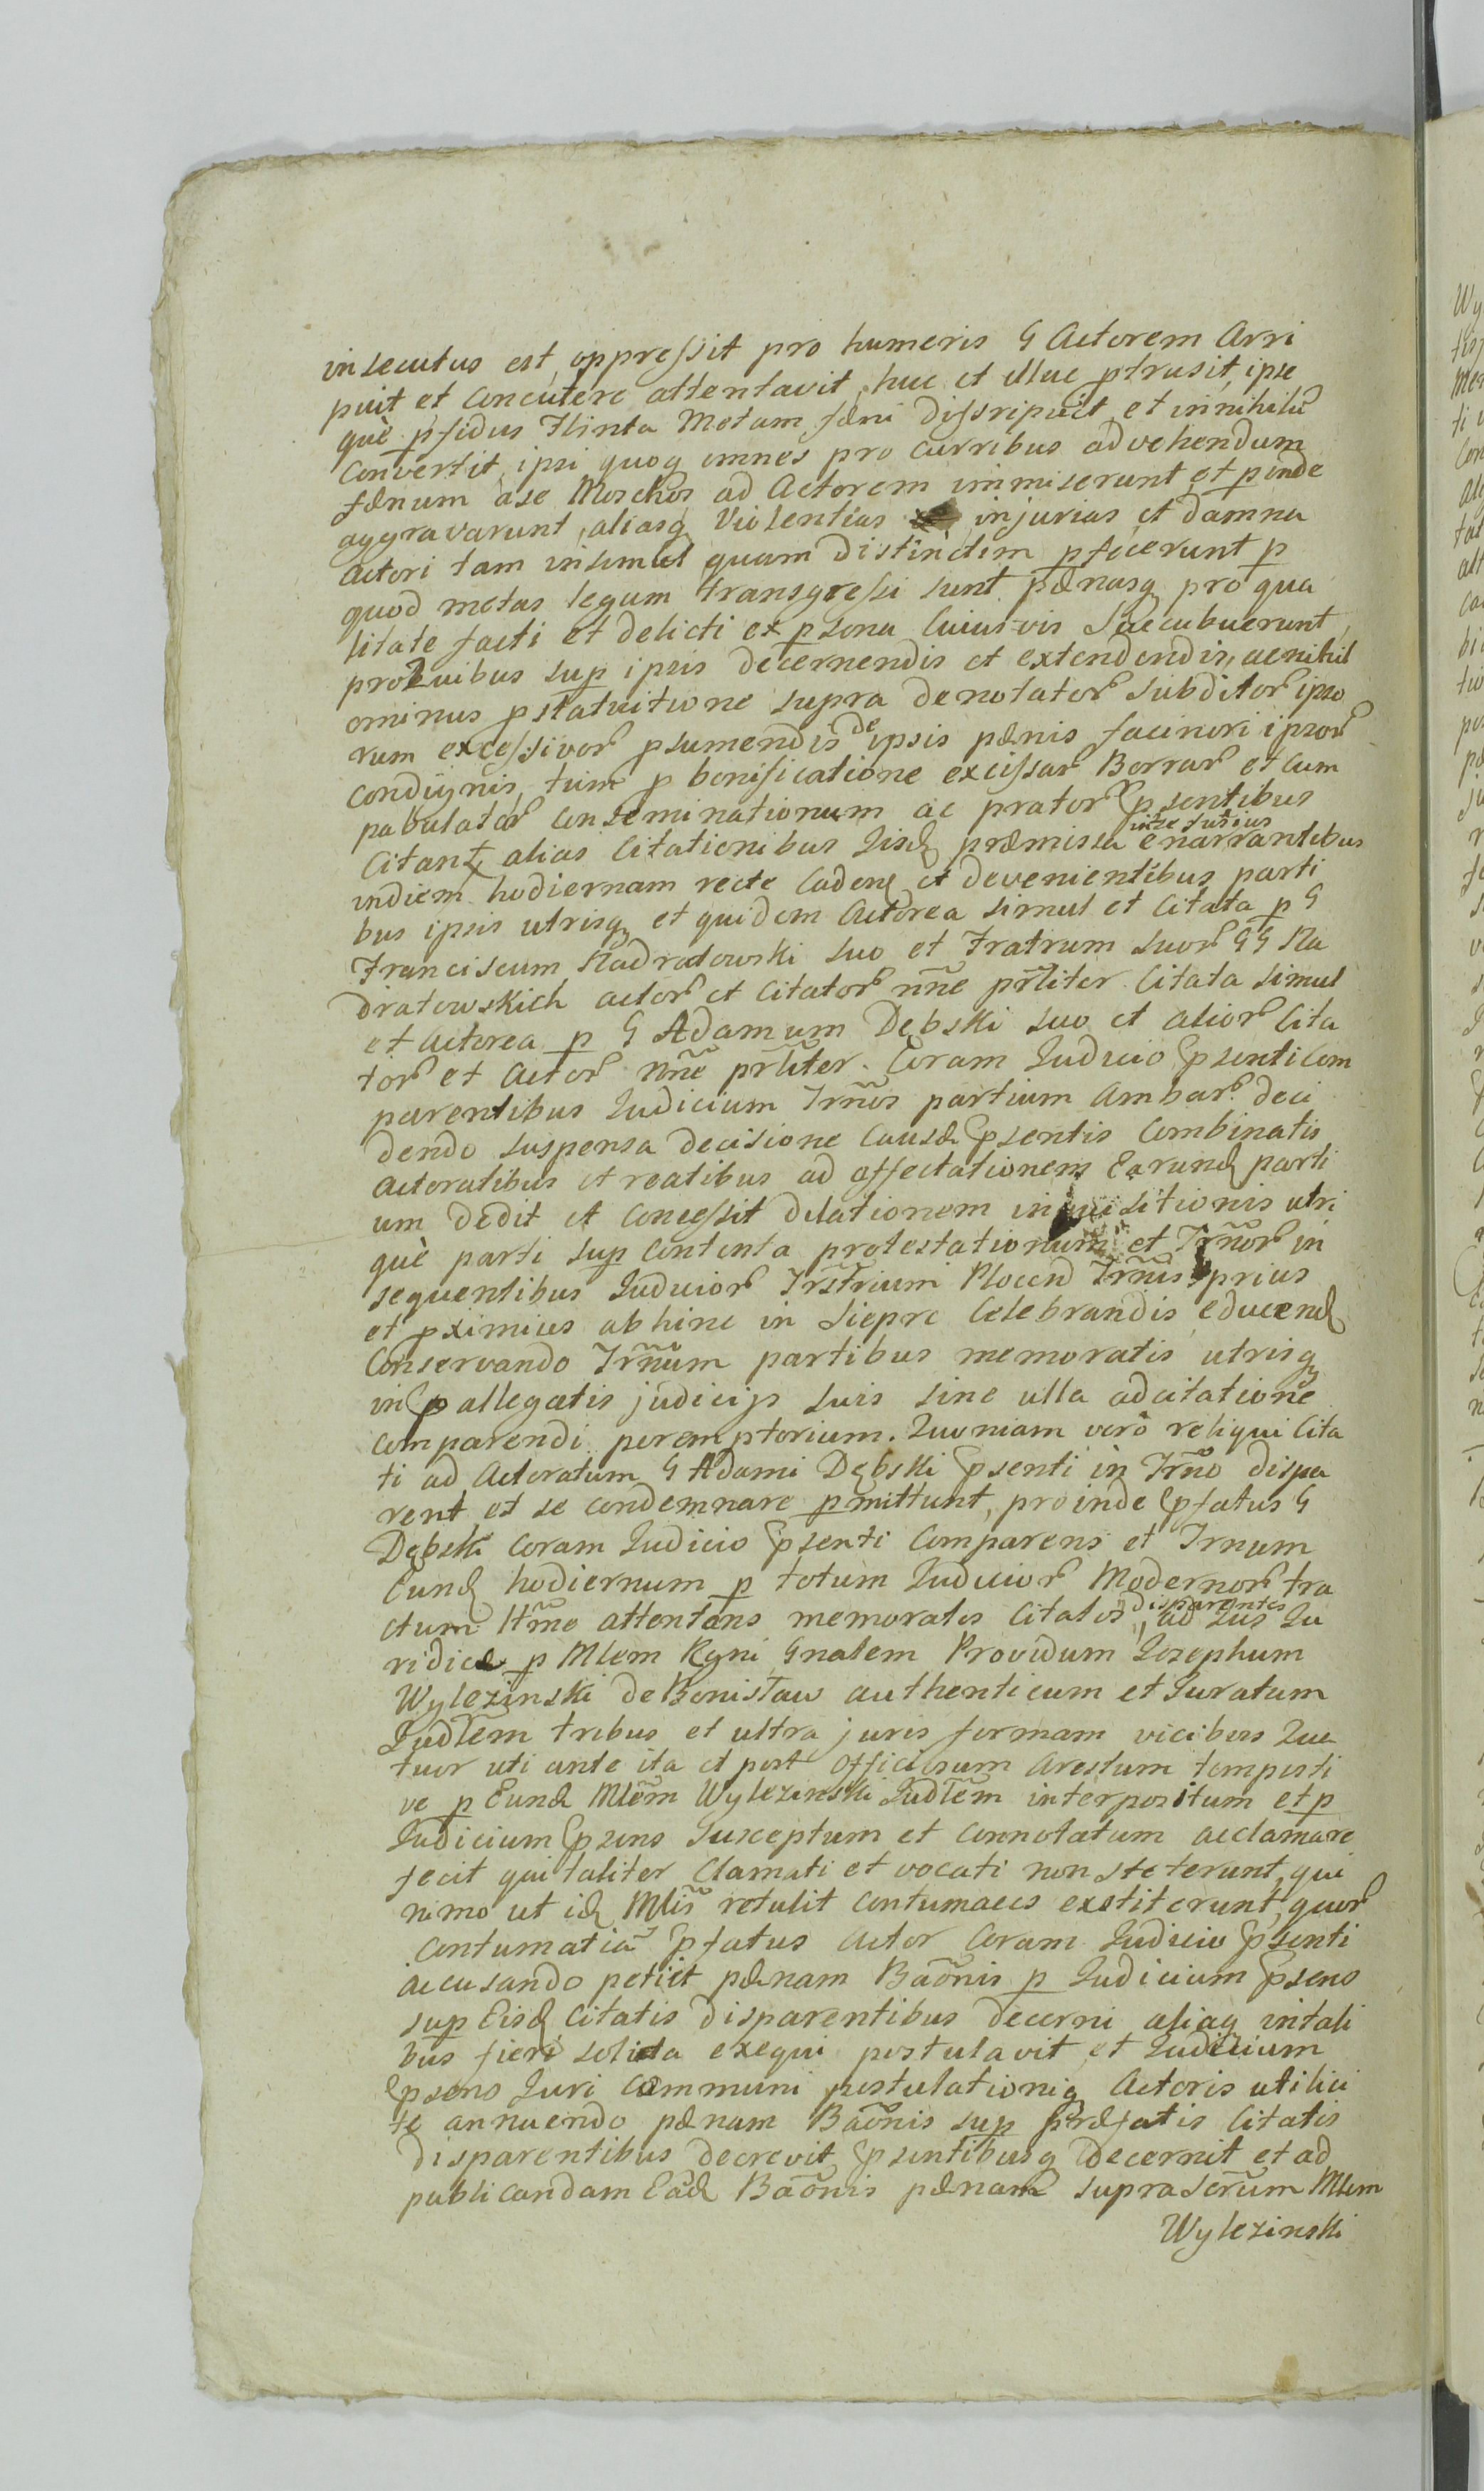 insecutus est, oppressit pro humeris G Actorem Arri
puit et Concutere attentavit, huc et illuc ptrusit, ipse
què pfidus Flinta Metam fæni dissripuit et in nihilũ
Convertit, ipsi quoq omnes pro curribus advehendum
fænum à se Moschos ad Actorem immiserunt et pinde
aggravarunt, aliasq Violentias injurias et damna
Actori tam insimul quam distinctim pfecerunt p
quod metas legum transgressi sunt pænasq pro qua
litate facti et delicti ex psona Cuiusvis Succubuerunt,
pro Quibus sup ipsis decernendis et extendendis, ac nihil
ominus pstatuitione supra denotator Subditor ipso
rum excessivor psumendis de ipsis pænis facinori ipsor
condignis, tum p bonificatione excissar Borrar et cum
pabulator Conseminationum ac prator psentibus
Citan alias Citationibus Iisd præmissa intze fusius enarrantibus
in diem hodiernam recte Caden et devenientibus parti
bus ipsis utrisq et quidem Actorea simul et Citata p G
Franciscum Nadratowski suo et Fratrum suor GG Na
dratowskich actor et Citator nñe prliter. Citata simul
et Actorea p G Adamum Dębski suo et alior Cita
tor et Actor nñe prliter. Coram Judicio psenti Com
parentibus Judicium Trnõs partium Ambar deci
dendo suspensa decisione Causæ psentis Combinatis
Actoratibus et reatibus ad affectationem Earund parti
um dedit et concessit dilationem inquisitionis utri
què parti sup contenta protestationum et Trñor in
sequentibus Judicior Trstrium Plocen Trñis prius
et pximius abhinc in Siepre Celebrandis, educend
Conservando Trñum partibus memoratis utrisq
in p allegatis judicijs suis sine ulla adcitatione
comparendi peremptorium. Quoniam verò reliqui Cita
ti ad Actoratum G Adami Dębski psenti in Trño dispa
rent et se condemnare pmittunt, proinde pfatus G
Dębski Coram Judicio psenti Comparens et Trnum
Eund hodiernum p totum Judicior Modernor tra
ctum ltme attentans memoratos Citatos disparentes, ad Jus Ju
ridice p Mlem Rgni Gnalem Providum Josephum
Wylezinski de Bonisław authenticum et Juratum
Judlem tribus et ultra juris formam vicibus Qua
tuor uti ante ita et post Officiosum Arestum tempesti
ve p Eund Mlem Wylezinski Judlem interpositum et p
Judicium psens Susceptum et Connotatum acclamare
fecit qui taliter Clamati et vocati non steterunt, qui
nimo ut id Mlis retulit contumaces exstiterunt, quor
contumatiã pfatus Actor Coram Judicio psenti
accusando petiit pænam Baõnis p Judicium psens
sup Eisd Citatis disparentibus decerni aliaq in tali
bus fieri solita exequi postulavit et Judicium
psens Juri Communi postulationiq Actoris utilici
te annuendo pænam Baõnis sup præfatis Citatis
disparentibus decrevit psentibusq decernit et ad
publicandam Eãd Baõnis pænam suprascrũm Mlem
Wylezinski